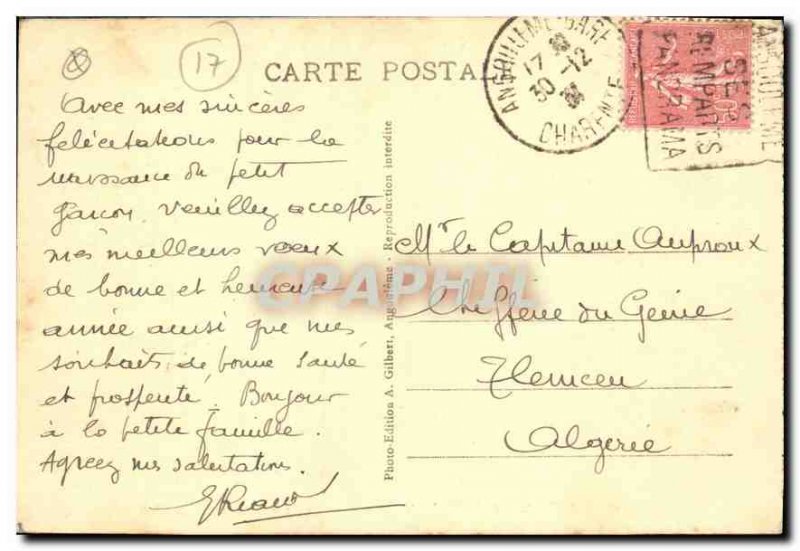 17
CARTE POSTALE
ANGOULEME-GARE
17
30 -12
CHARENTE
ANGOULEME
SES
REMPARTS
PANORAMA
Avec mes sincères
félicitations pour la
naissance du petit
garçon, veuillez accepter
mes meilleurs voeux
de bonne et heureuse
année ainsi que mes
souhaits de bonne santé
et prospérité. Bonjour
à la petite famille.
Agréez mes salutations.
Photo-Edition A. Gilbert, Angoulême - Reproduction interdite
Mr le Capitaine
du Génie
Tlemcen
Algérie
CPAPHIL